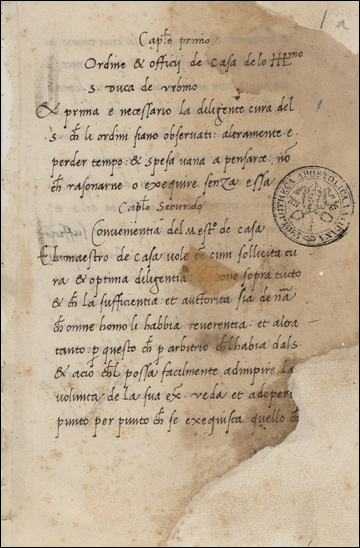 1 a
Capľo primo
Ordine & officij de Casa de lo Ill.mo
.S. Duca de vrbino
& prima e necessario la diligente cura del
.S. ch̄ li ordini siano observati: altramente e.
perder tempo: & spesa vana a pensarce. nō
ch̄ rasonarne o exequire senza essa
Capľo Secundo
Convenientia del M.stro de casa
El maestro de Casa vole cum sollicita cu
ra & optima diligentia: sopra tucto
& ch̄ la sufficientia et auttorita sia de
ch̄ omne homo li habbia reverentia. et altra
tanto: p questo ch̄ p arbitrio ch̄ lhabia dal.S.
& acio ch̄l possa facilmente adimpire la
volunta de la sua ex. veda et adoperi
punto per punto ch̄ se exequisca quello ch̄
BIBLIOTHECA APOSTOLICA VATICANA